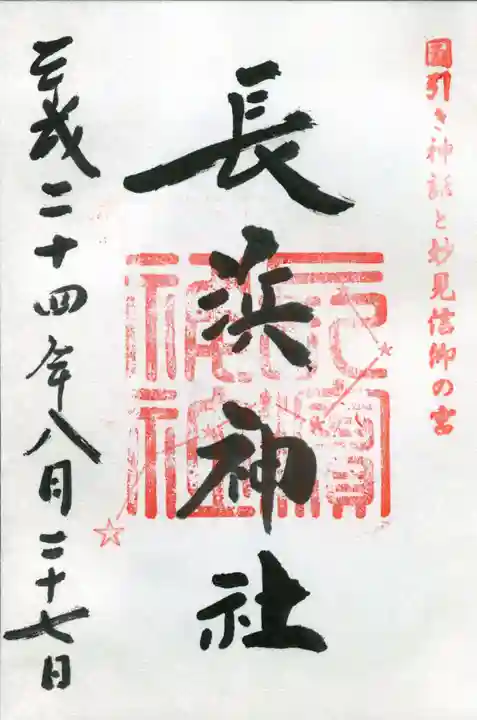 國引き神話と妙見信仰の宮
長浜神社
平成二十四年八月二十七日